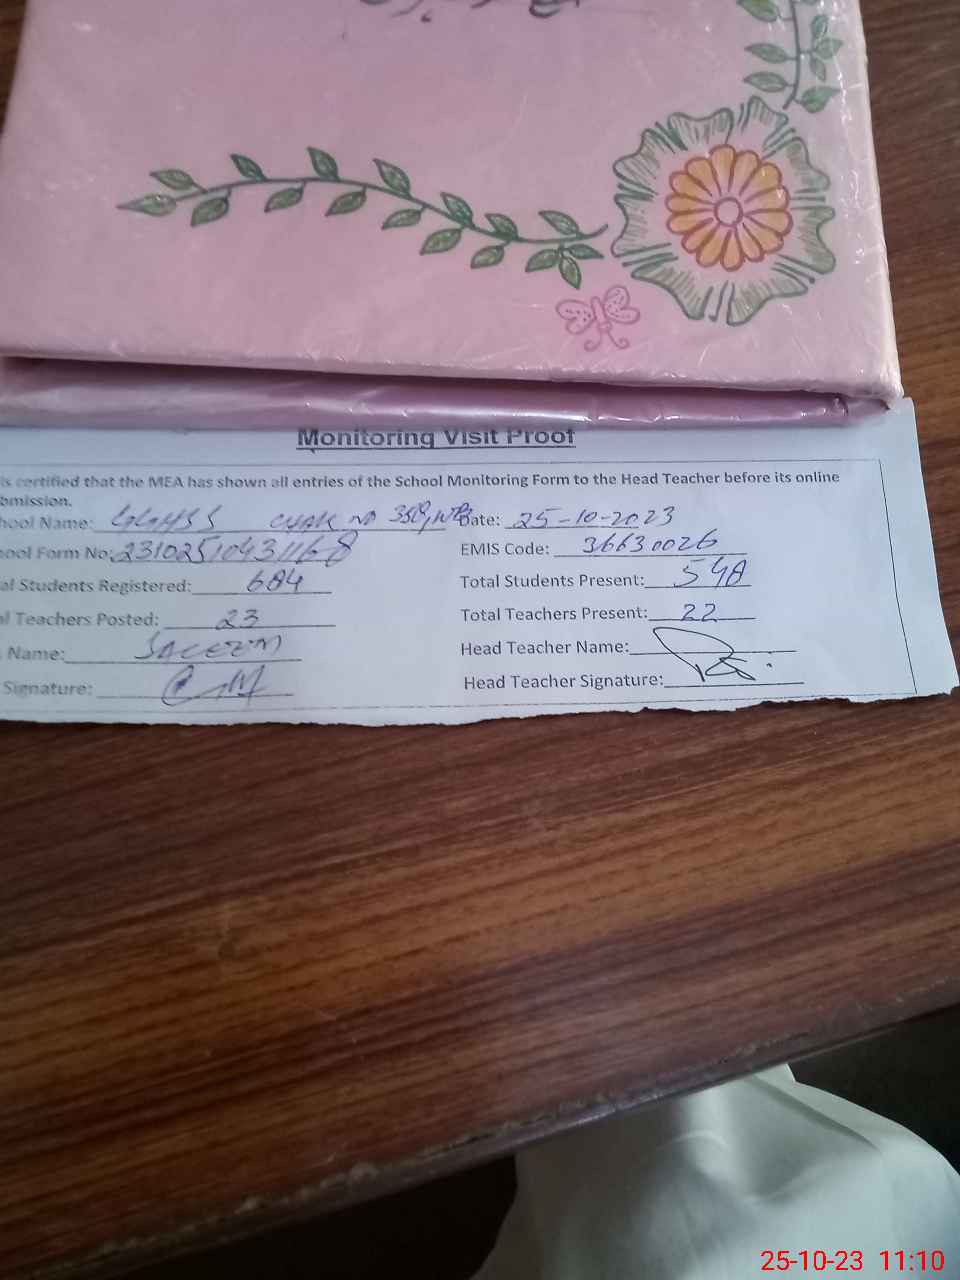 Monitoring Visit Proof
is certified that the MEA has shown all entries of the School Monitoring Form to the Head Teacher before its online
bmission.
hool Name: GGHSS CHAK NO Date: 25-10-2023
ool Form No: EMIS Code: 36630026
al Students Registered: 684 Total Students Present: 548
l Teachers Posted: 23 Total Teachers Present: 22
Name: Head Teacher Name:
Signature: Head Teacher Signature:
25-10-23 11:10